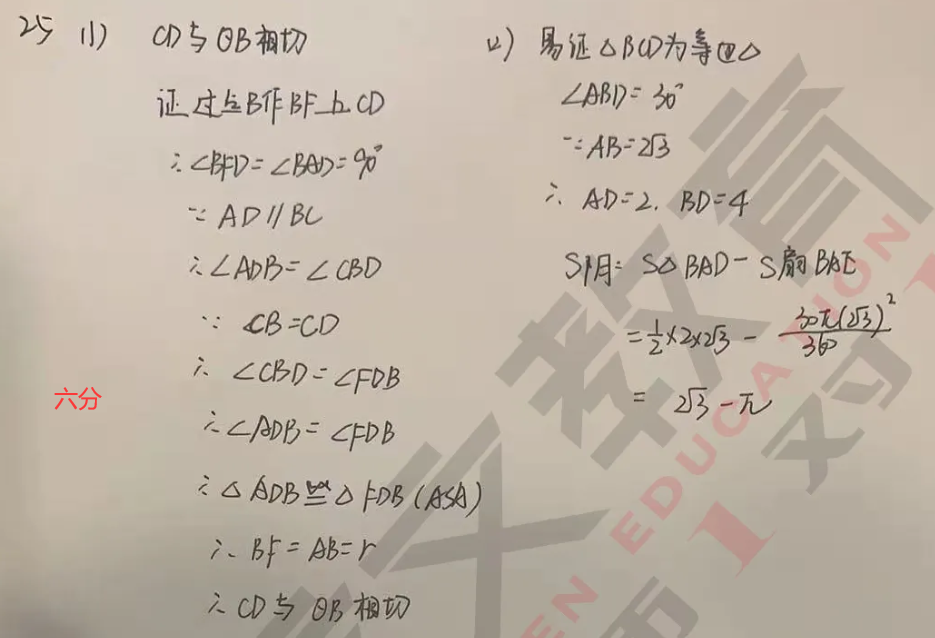 25 (1) CD与⊙B相切
证过点B作BF⊥CD
∴∠BFD=∠BAD=90°
∵AD∥BC
∴∠ADB=∠CBD
∵CB=CD
∴∠CBD=∠FDB
∴∠ADB=∠FDB
∴△ADB≌△FDB(ASA)
∴BF=AB=r
∴CD与⊙B相切
六分
(2) 易证△BCD为等边△
∠ABD=30°
∵AB=2√3
∴AD=2.BD=4
S阴=S△BAD-S扇BAE
=1/2×2×2√3-30π(2√3)²/360
=2√3-π
文教育
EN EDUCATION
1对